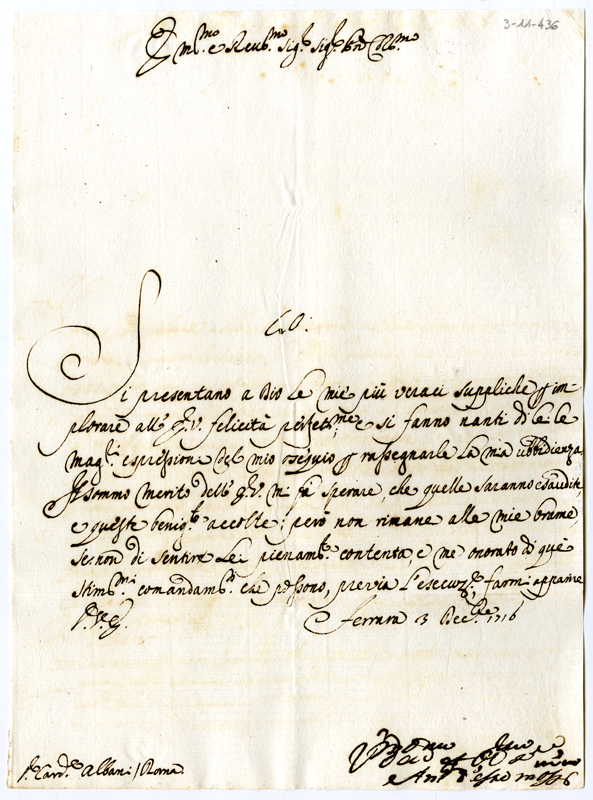 3-11-436
Em.mo e Reu.mo Sig.r Sig.r Pron Col.mo
Si presentano a Dio le mie più veraci suppliche p im-
plorare all' E.V. felicità perfett.me e si fanno nanti di lei le
mag.ri espressioni del mio ossequio p rassegnarle la mia ubbidienza.
Il sommo merito dell' E.V. mi fà sperare, che quelle saranno esaudite,
e queste benig.te accolte; però non rimane alle mie brame,
se non di sentire Lei pienam.te contenta, e me onorato di que
stim.mi comandam.ti che possono, previa l'esecuz.ne, farmi apparire
Ferrara 3 Dec.bre 1716
S.r Card.le Albani / Roma